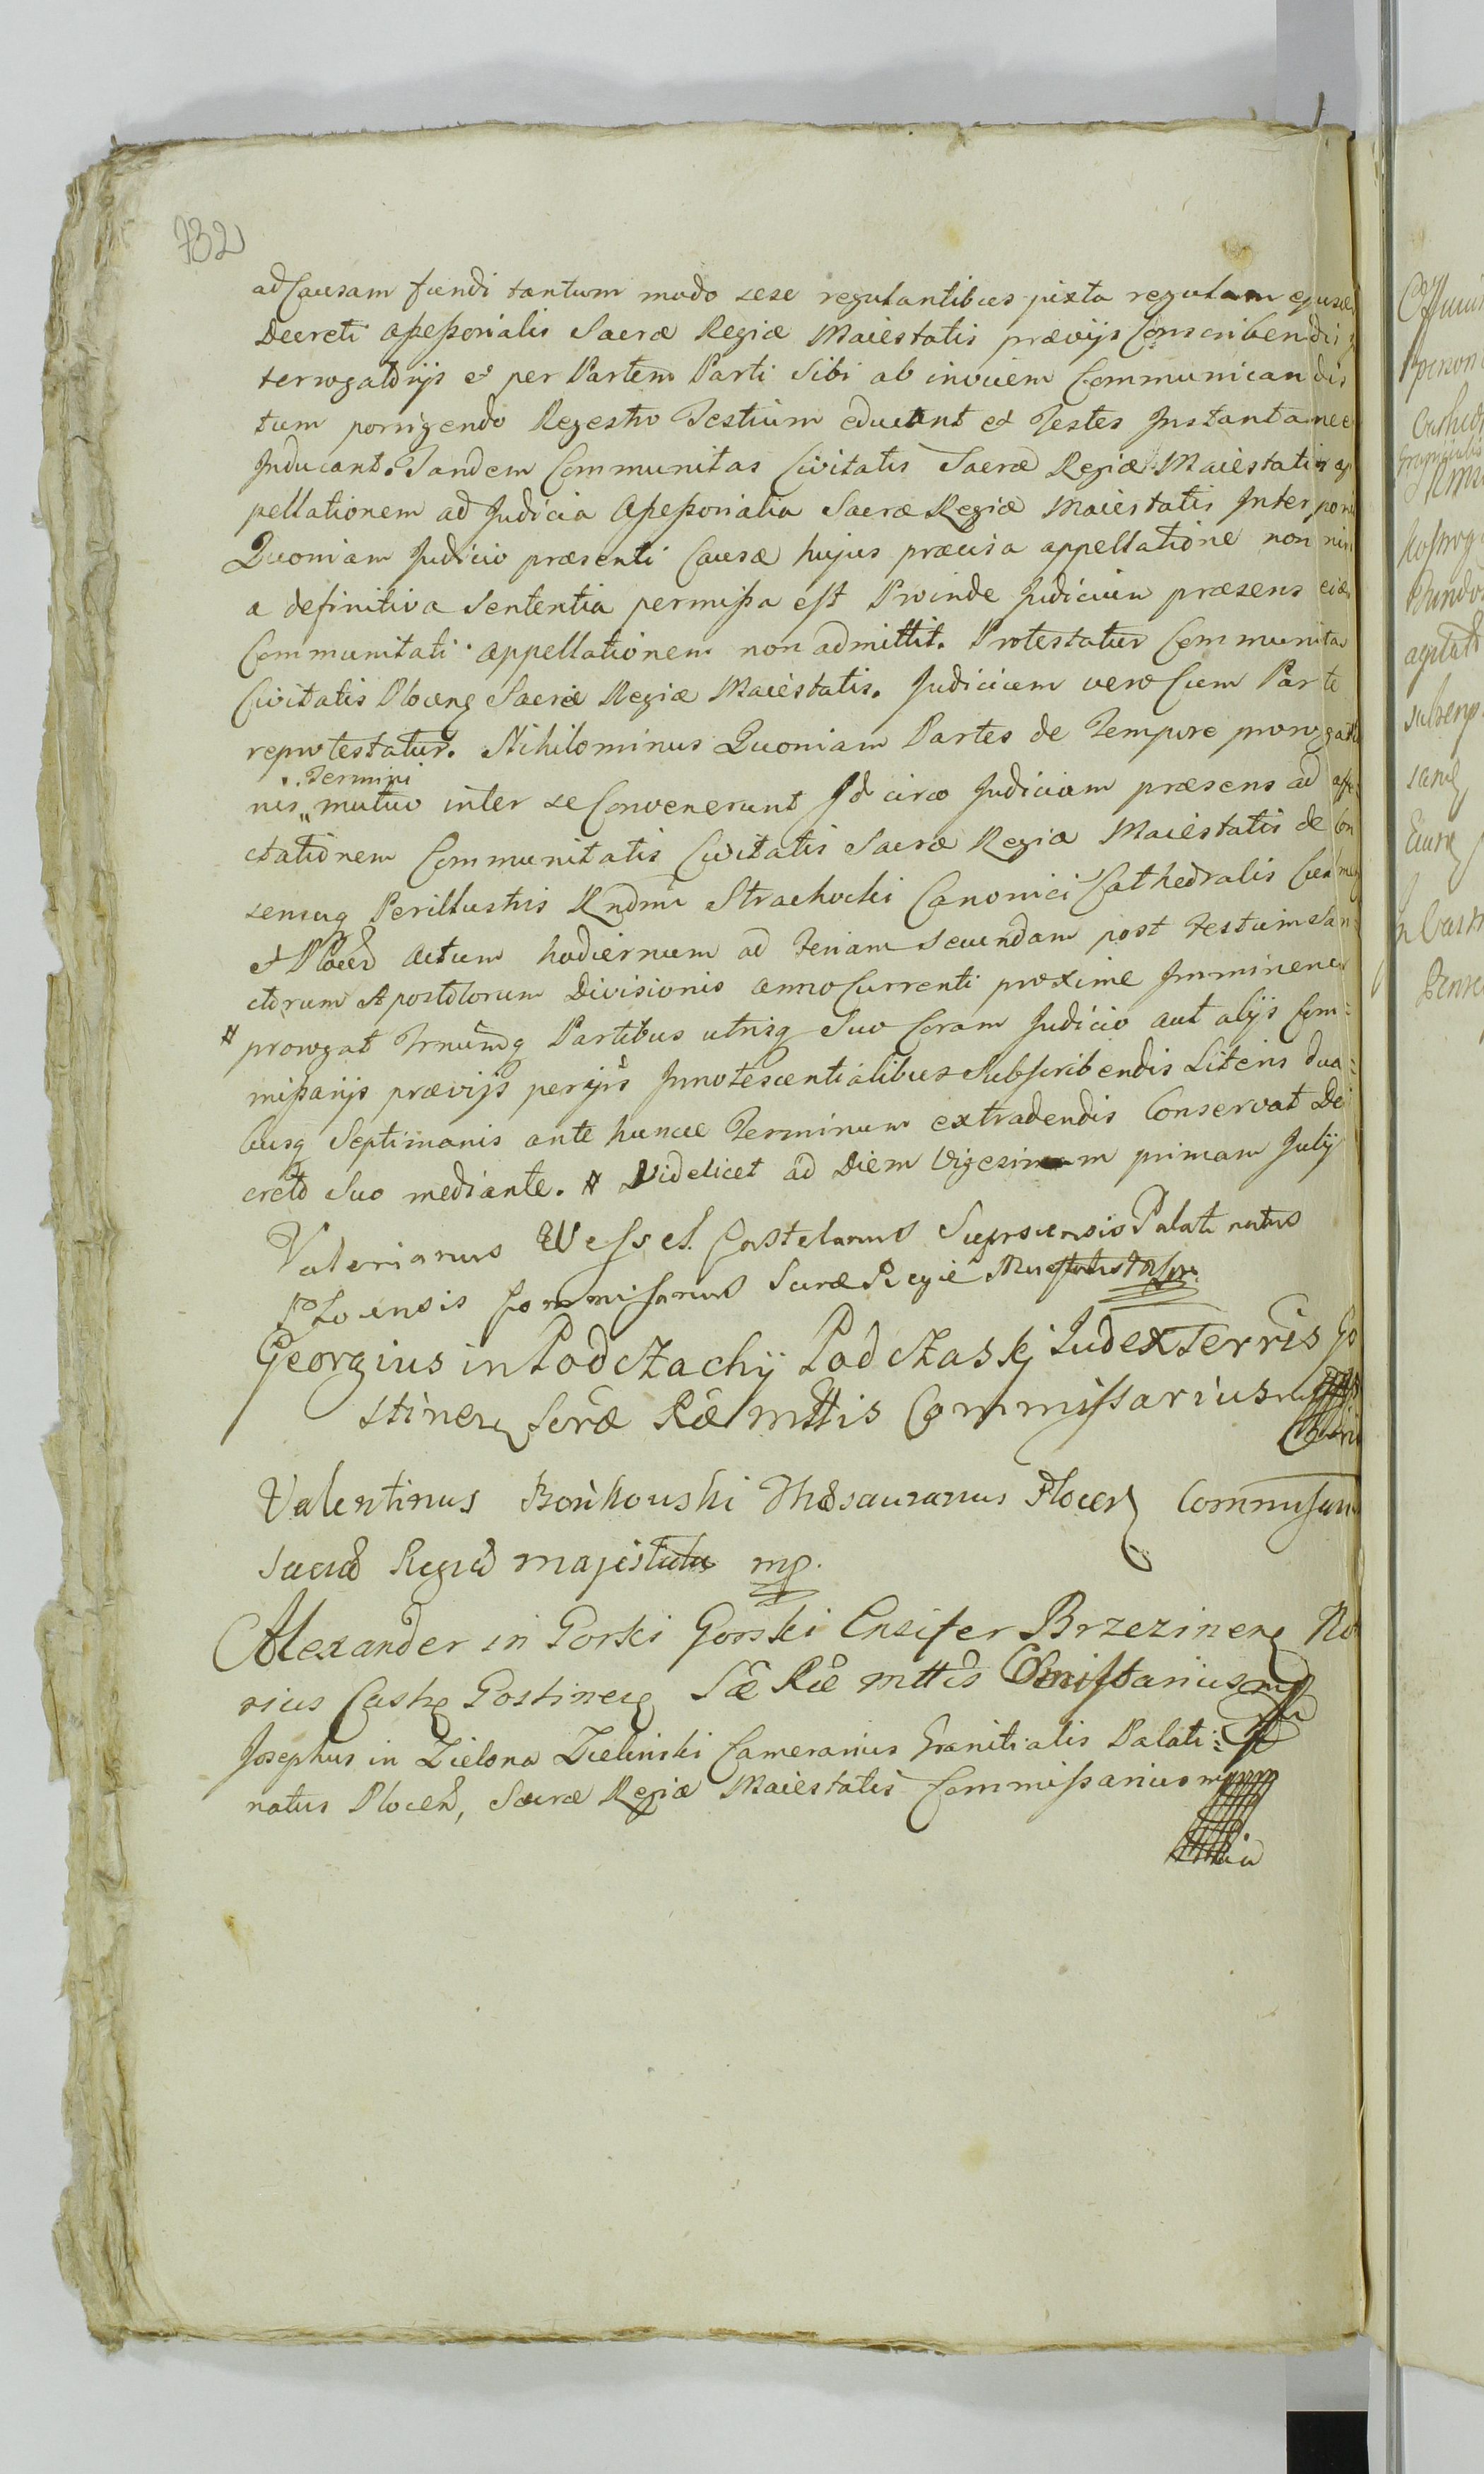 732
ad Causam fundi tantum modo sese regulantibus juxta regulam ejusd
Decreti assessorialis Sacræ Regiæ Maiestatis prævijs Conscribendis
terrogatorijs et per Partem Parti Sibi ab invicem Communicandis
tum porrigendo Regestro Testium educant et Testes Instantanee
Inducant. Tandem Communitas Civitatis Sacræ Regiæ Maiestatis ap
pellationem ad Judicia Assessorialia Sacræ Regiæ Maiestatis Interponi
Quoniam Judicio præsenti Causæ hujus præcisa appellatione non nisi
a definitiva Sententia permissa est Proinde Judicium præsens eid
Communitati appellationem non admittit. Protestatur Communitas
Civitatis Plocensq Sacræ Regiæ Maiestatis. Judicium vero Cum Parte
reprotestatur. Nihilominus Quoniam Partes de Tempore prorogatio
Termini
nis „ mutuo inter se Convenerunt Id circo Judicium præsens ad affe-
ctationem Communitatis Civitatis Sacræ Regiæ Maiestatis de Con
sensuq Perillustris Rndmi Strachocki Canonici Cathedralis
et Plocen Actum hodiernum ad Feriam Secundam post Festum San-
ctorum Apostolorum Divisionis anno Currenti proxime Imminenen
# prorogat Trnumq Partibus utrisq Suo Coram Judicio aut alijs Com-
missarijs prævijs Innotescentialibus Subscribendis Literis dua-
busq Septimanis ante huncce Terminum extradendis Conservat De
creto Suo mediante. # Videlicet ad Diem Vigesimam primam Julij
Valerianus Wessel Castelanus Palatinatus
Plocensis Commissarius Sacræ Regiæ Maiestatis
Georgius in Podczachy Podczaski Judex Terris Go
stinen Scræ Ræ Mttis Commissarius
Valentinus Bonkouski Thesaurarius Plocen Commissari
Sacræ Regiæ Majestatis mp.
Alexander in Gorski Gorski Ensifer Brzezinen No
rius Castr Gostinen Sæ Ræ Mttis Comissarius mp
Josephus in Zielona Zielinski Camerarius Granitialis Palati-
natus Plocen, Sacræ Regiæ Maiestatis Commissarius